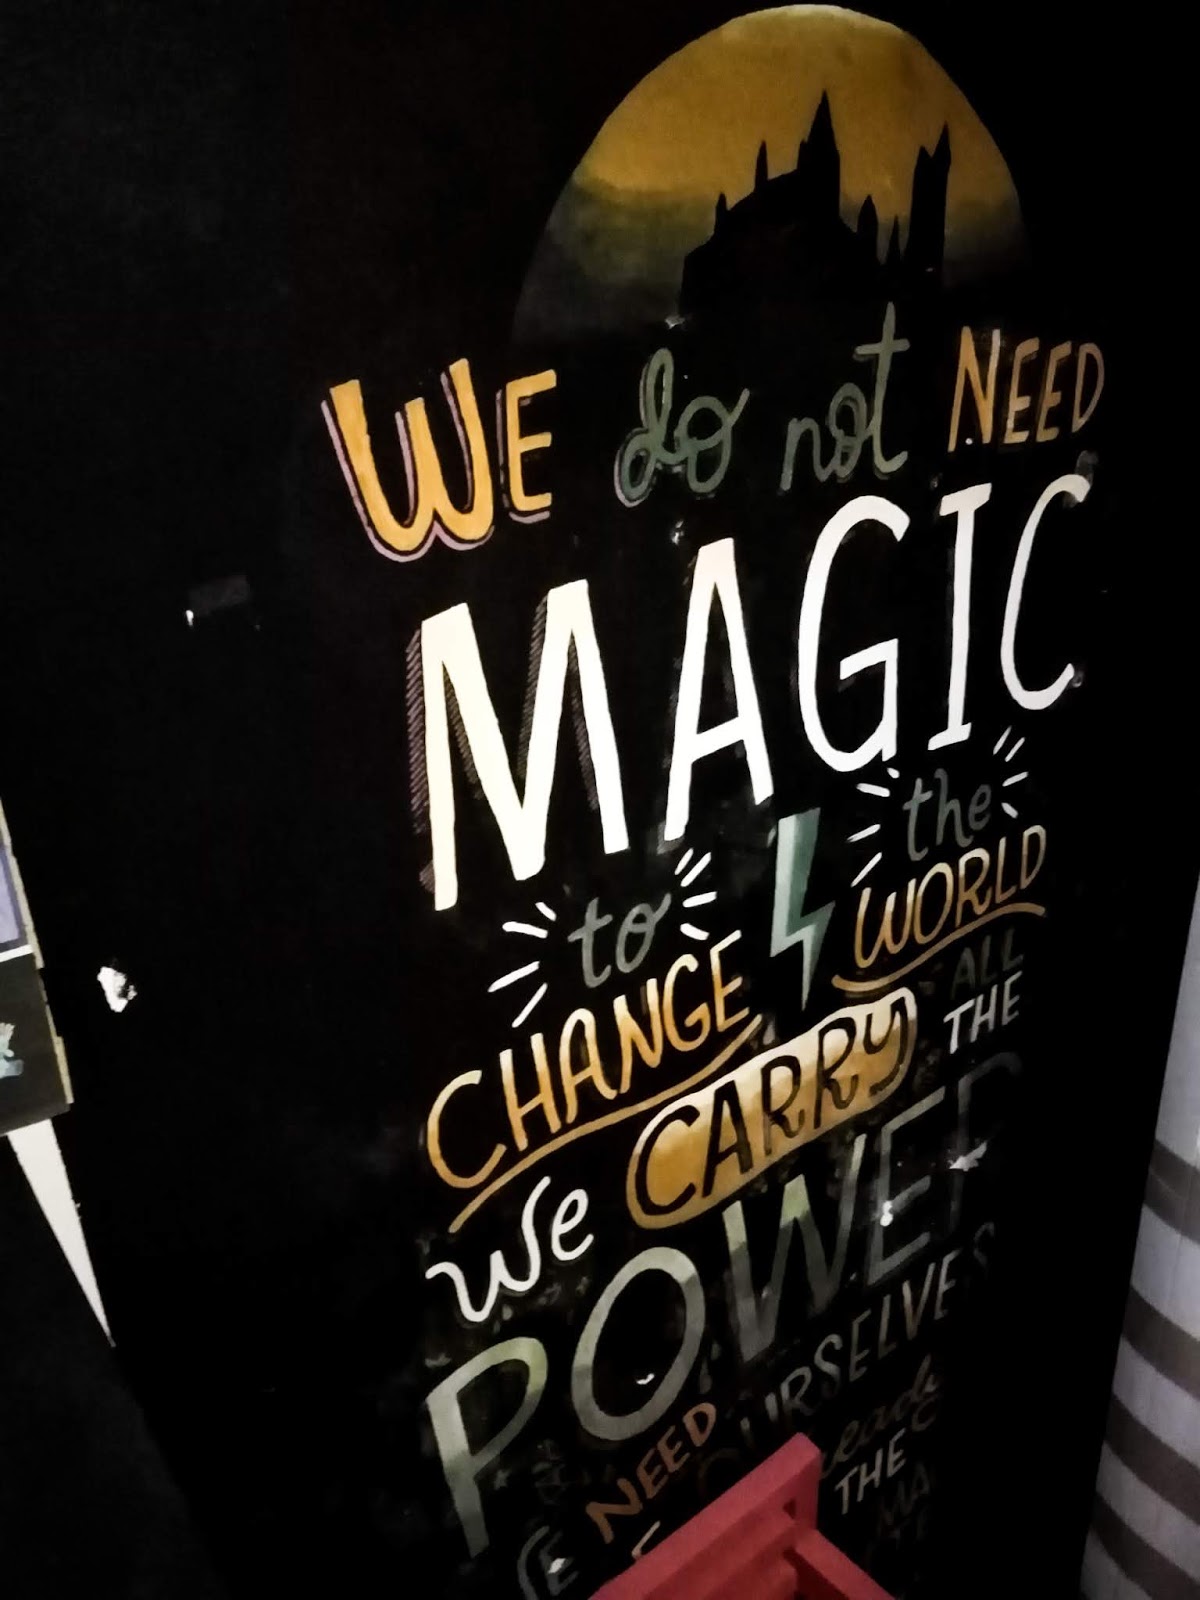 WE do not NEED
MAGIC
to CHANGE the WORLD
We CARRY ALL THE
POWER
NEED OURSELVES
THE